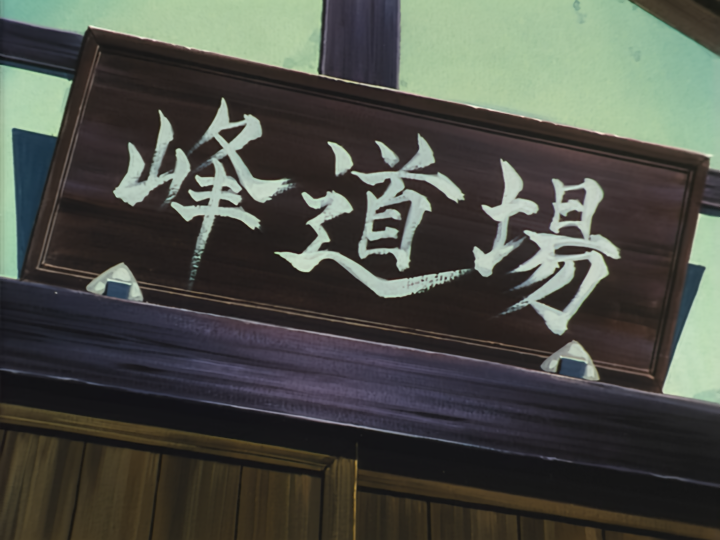 峰道場